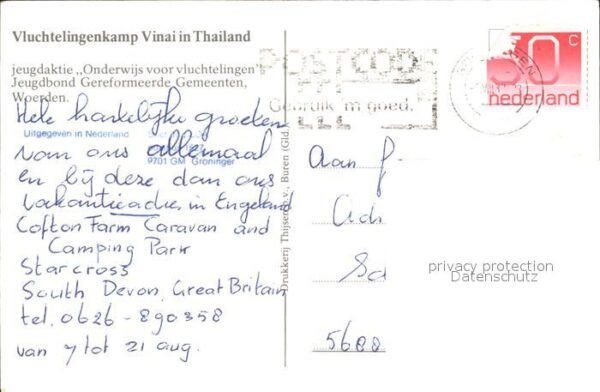 Vluchtelingenkamp Vinai in Thailand
jeugdaktie ,,Onderwijs voor vluchtelingen"
Jeugdbond Gereformeerde Gemeenten,
Woerden.
Hele hartelijke groeten
van ons allemaal
en bij deze dan ons
vakantieadres in Engeland
Cofton Farm Caravan and
Camping Park
Starcross
South Devon, Great Britain
tel. 0626-890358
van 7 tot 21 aug.
Uitgegeven in Nederland
9701 GM Groningen
Drukkerij Thijsen b.v., Buren (Gld.
POSTCODE
Gebruik 'm goed.
50 c
nederland
Aan f
Ach
Sd
5688
privacy protection
Datenschutz